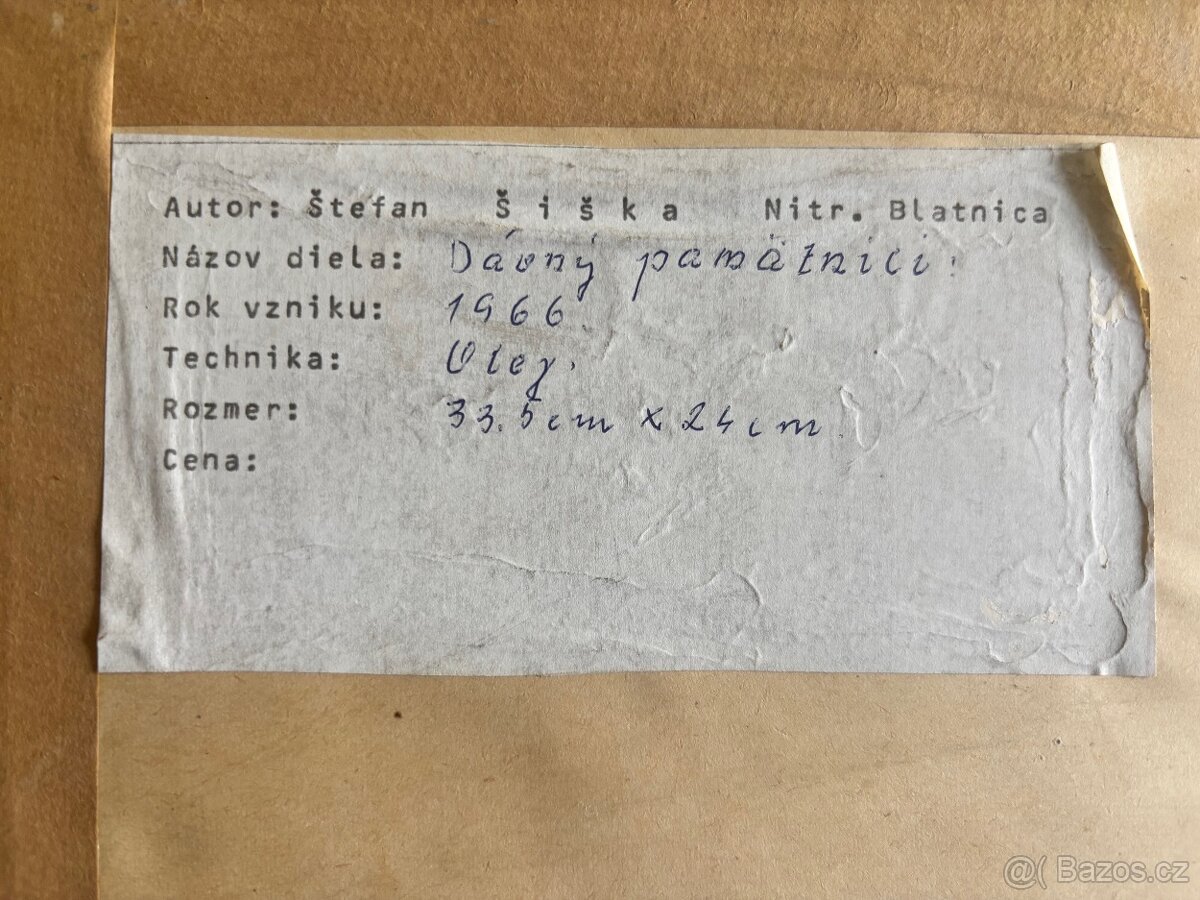 Autor: Štefan Šiška Nitr. Blatnica
Názov diela: Dávný pamätnici.
Rok vzniku: 1966.
Technika: Olej.
Rozmer: 33.5cm x 24cm.
Cena:
@( Bazos.cz